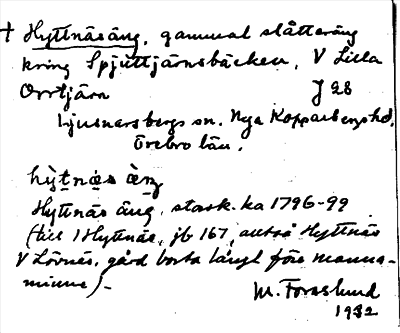 † Hyttnäsäng, gammal slåtteräng
kring Spjuttjärnsbäcken, V Lilla
Orrtjärn J 28
Ljusnarsbergs sn. Nya Kopparbergs hd.
Örebro län.
Hyttnäs äng, stark. ka 1796-99
(till 1 Hyttnäs, jb 167, också Hyttnäs
V Lövnäs, gård borta långt före manna-
minne).
M. Forsslund
1932